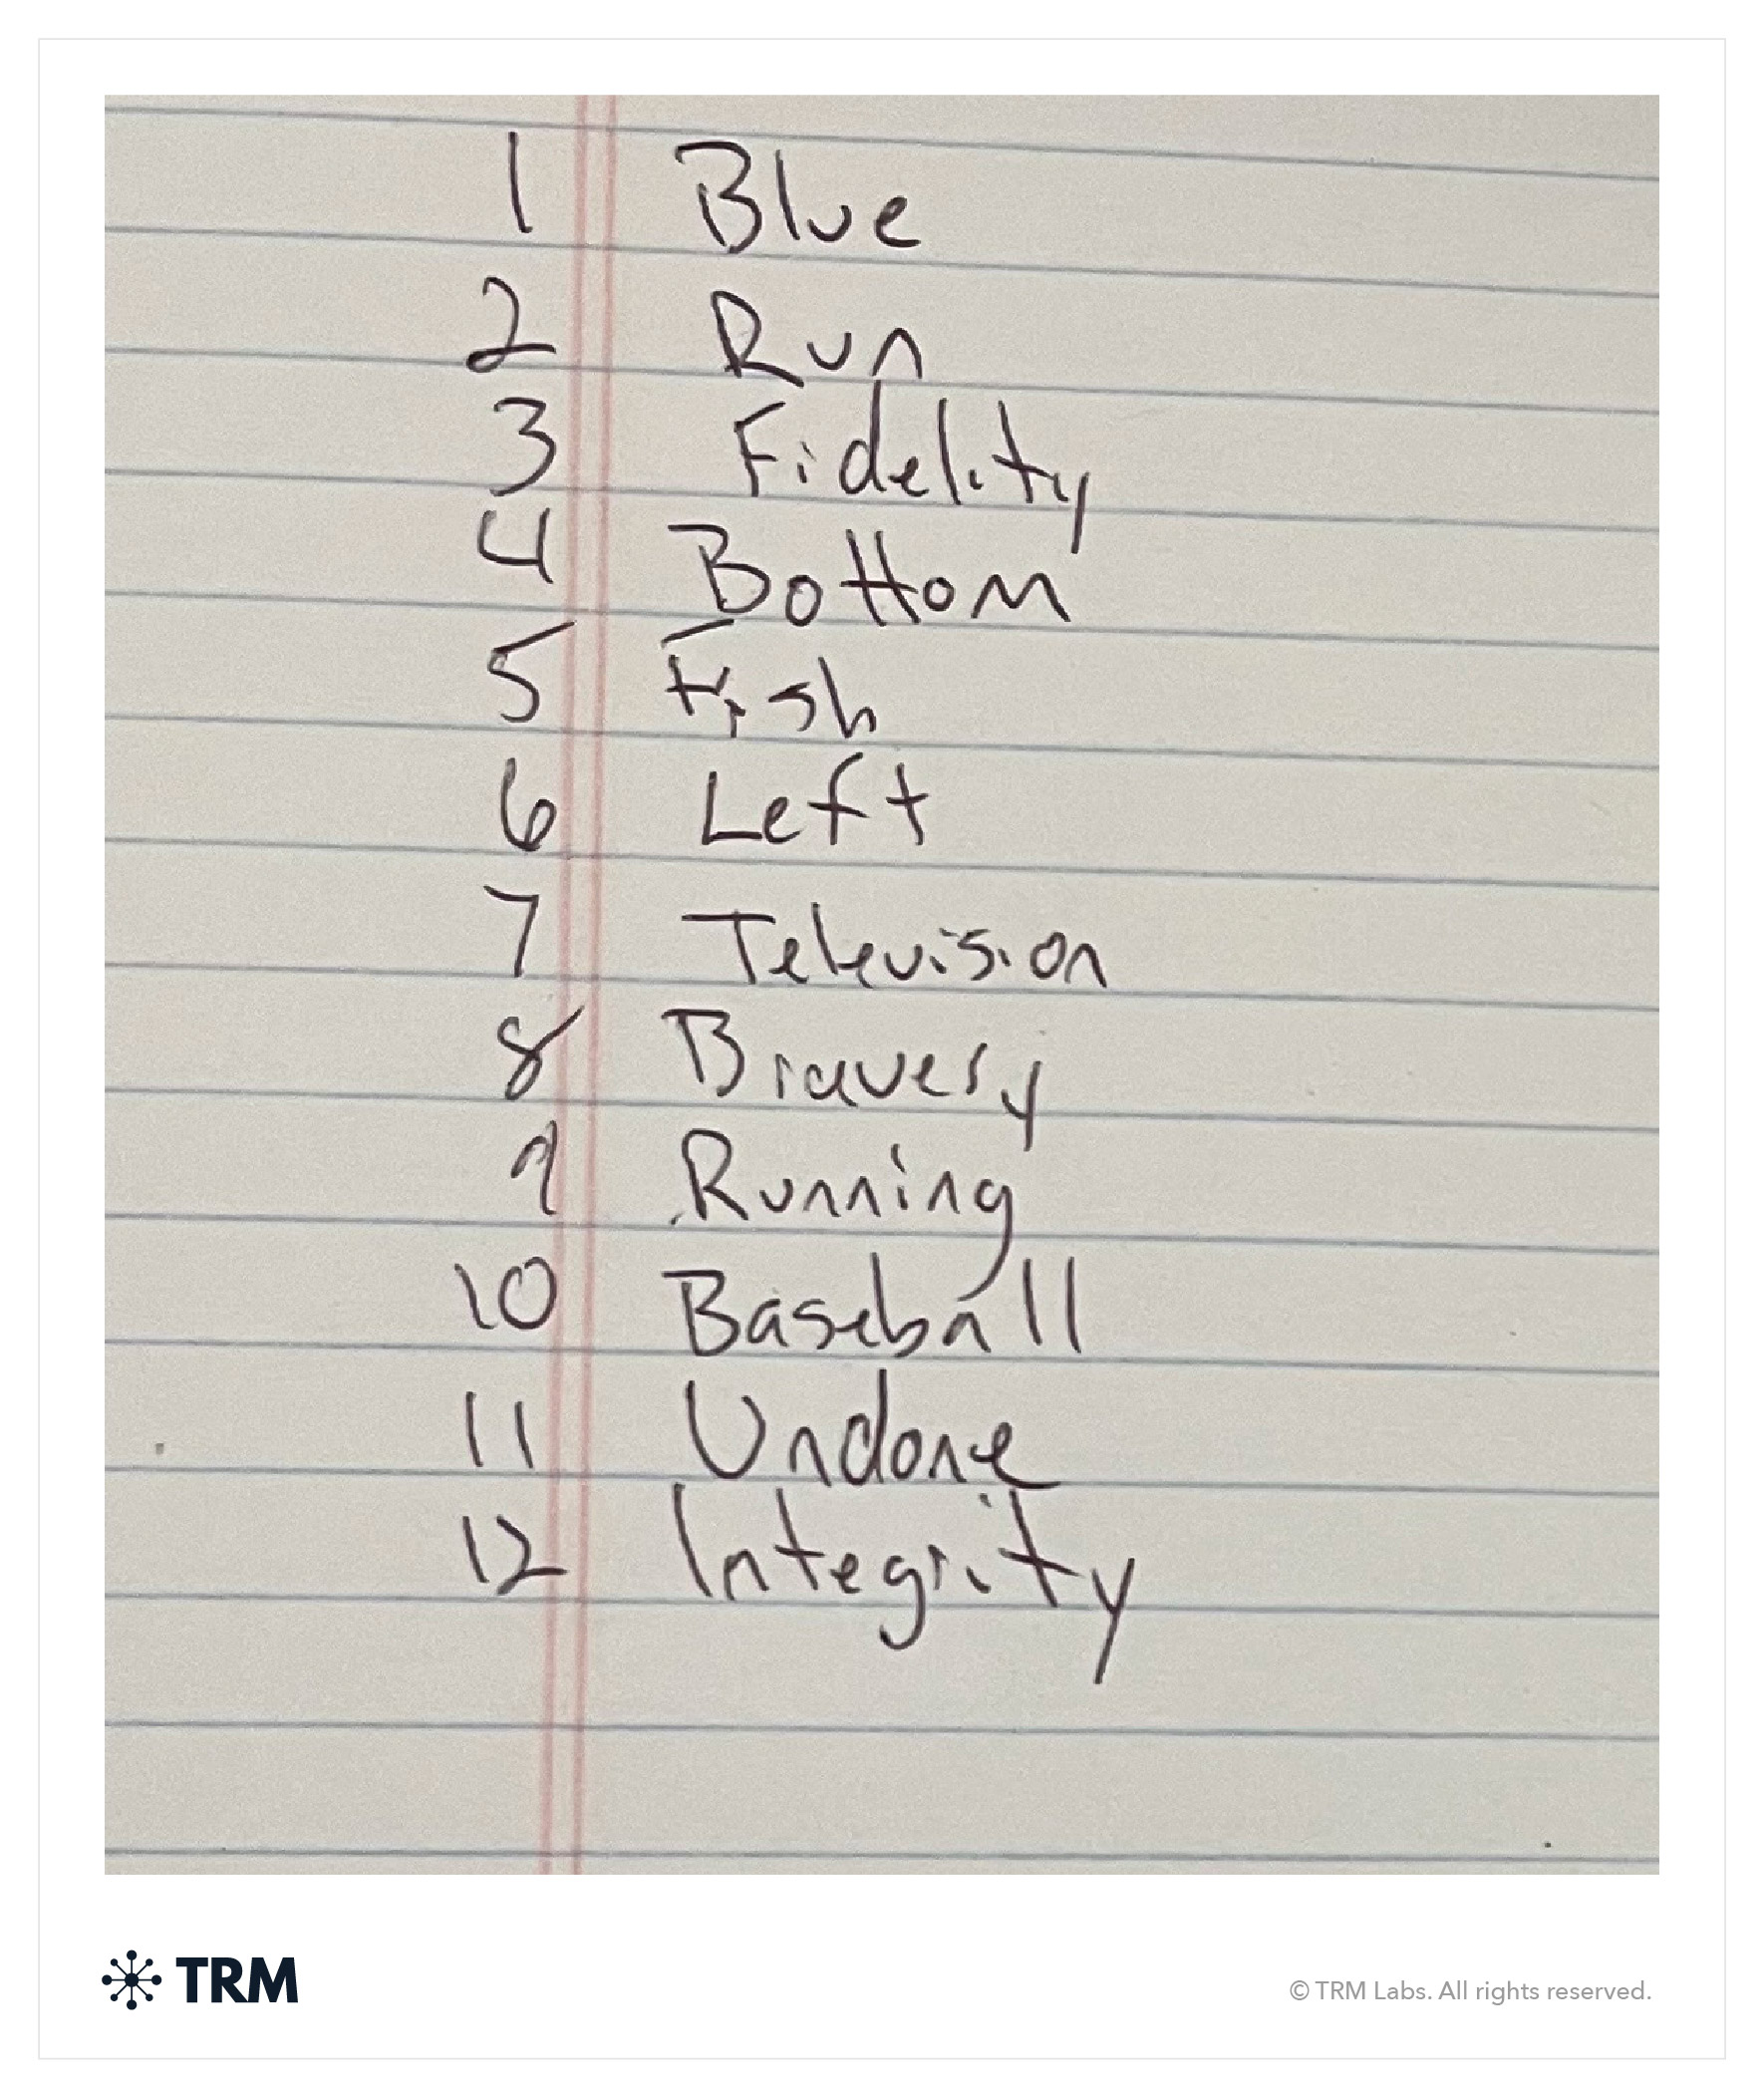 1 Blue
2 Run
3 Fidelity
4 Bottom
5 Fish
6 Left
7 Television
8 Bravery
9 Running
10 Baseball
11 Undone
12 Integrity
TRM
© TRM Labs. All rights reserved.